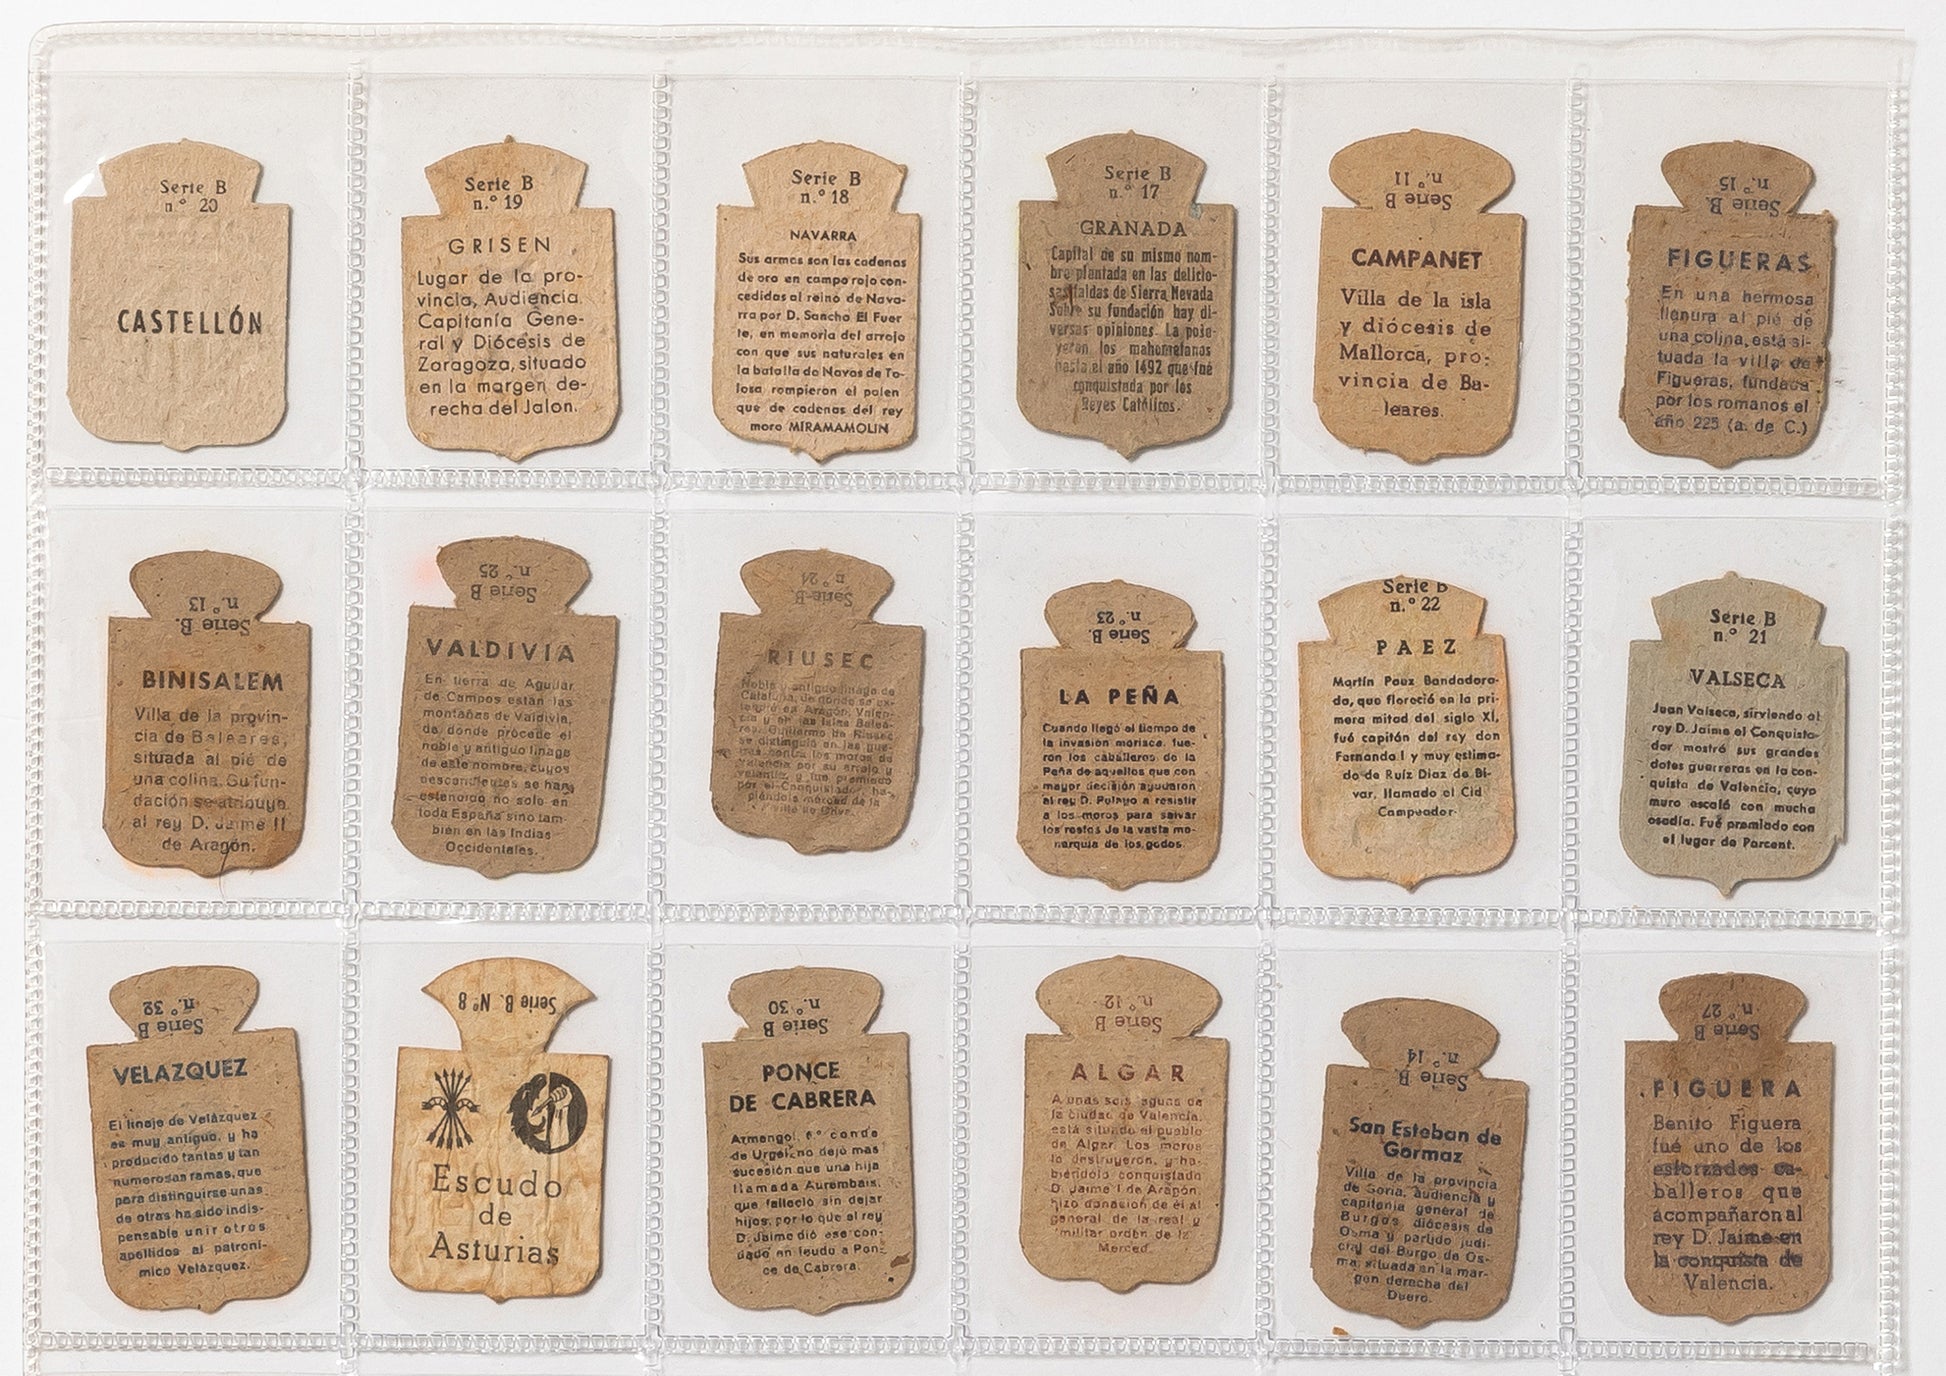 Serie B
n.º 20
CASTELLÓN
Serie B
n.º 19
GRISEN
Lugar de la pro-
vincia, Audiencia
Capitanía Gene-
ral y Diócesis de
Zaragoza, situado
en la margen de-
recha del Jalon.
Serie B
n.º 18
NAVARRA
Sus armas son las cadenas
de oro en campo rojo con-
cedidas al reino de Nava-
rra por D. Sancho El Fuer
te, en memoria del arrojo
con que sus naturales en
la batalla de Navas de To-
losa, rompieron el palen
que de cadenas del rey
moro MIRAMAMOLIN
Serie B
n.º 17
GRANADA
Capital de su mismo nom-
bre plantada en las delicio-
sas faldas de Sierra Nevada
Sobre su fundación hay di-
versas opiniones. La pose-
yeron los mahometanos
hasta el año 1492 que fué
conquistada por los
Reyes Católicos.
Serie B
n.º 11
CAMPANET
Villa de la isla
y diócesis de
Mallorca, pro-
vincia de Ba-
leares.
Serie B.
n.º 15
FIGUERAS
En una hermosa
llanura al pié de
una colina, está si-
tuada la villa de
Figueras, fundada
por los romanos el
año 225 (a. de C.)
Serie B.
n.º 13
BINISALEM
Villa de la provin-
cia de Baleares,
situada al pié de
una colina. Su fun-
dación se atribuye
al rey D. Jaime II
de Aragón.
Serie B
n.º 25
VALDIVIA
En tierra de Aguilar
de Campos están las
montañas de Valdivia,
de donde procede el
noble y antiguo linage
de este nombre, cuyos
descendientes se han
estendido no solo en
toda España sino tam
bien en las Indias
Occidentales.
Serie B.
n.º 24
RIUSEC
Noble y antiguo linage de
Cataluña, de donde se ex-
tendió en Aragón, Valen-
cia y en las Islas Balea-
res. Guillermo de Riusec
se distinguió en las gue-
rras contra los moros de
Valencia por su arrojo y
valentía, y fue premiado
por el Conquistador, ha-
ciéndole merced de la
villa de
Serie B.
n.º 23
LA PEÑA
Cuando llegó el tiempo de
la invasión morisca, fue-
ron los caballeros de la
Peña de aquellos que con
mayor decisión ayudaron
al rey D. Pelayo a resistir
a los moros para salvar
los restos de la vasta mo-
narquía de los godos.
Serie B
n.º 22
PAEZ
Martín Paez Bandadora-
do, que floreció en la pri-
mera mitad del siglo XI,
fué capitán del rey don
Fernando I y muy estima-
do de Ruiz Diaz de Bi-
var, llamado el Cid
Campeador.
Serie B
n.º 21
VALSECA
Juan Valseca, sirviendo al
rey D. Jaime el Conquista-
dor mostró sus grandes
dotes guerreras en la con-
quista de Valencia, cuyo
muro escaló con mucha
osadía. Fué premiado con
el lugar de Parcent.
Serie B
n.º 32
VELAZQUEZ
El linaje de Velázquez
es muy antiguo, y ha
producido tantas y tan
numerosas ramas, que
para distinguirse unas
de otras ha sido indis-
pensable unir otros
apellidos al patroní-
mico Velázquez.
Serie B. Nº 8
Escudo
de
Asturias
Serie B
n.º 30
PONCE
DE CABRERA
Armengol, 6º conde
de Urgel, no dejó mas
sucesión que una hija
llamada Aurembais,
que falleció sin dejar
hijos, por lo que el rey
D. Jaime dió ese con-
dado en feudo a Pon-
ce de Cabrera.
Serie B
n.º 12
ALGAR
A unas seis aguas de
la ciudad de Valencia,
está situado el pueblo
de Algar. Los moros
lo destruyeron, y ha-
biéndolo conquistado
D. Jaime I de Aragón,
hizo donación de él al
general de la real y
militar orden de la
Merced.
Serie B.
n.º 14
San Esteban de
Gormaz
Villa de la provincia
de Soria, audiencia y
capitanía general de
Burgos, diócesis de
Osma y partido judi-
cial del Burgo de Os-
ma, situada en la mar-
gen derecha del
Duero.
Serie B
n.º 27
FIGUERA
Benito Figuera
fué uno de los
esforzados ca-
balleros que
acompañaron al
rey D. Jaime en
la conquista de
Valencia.